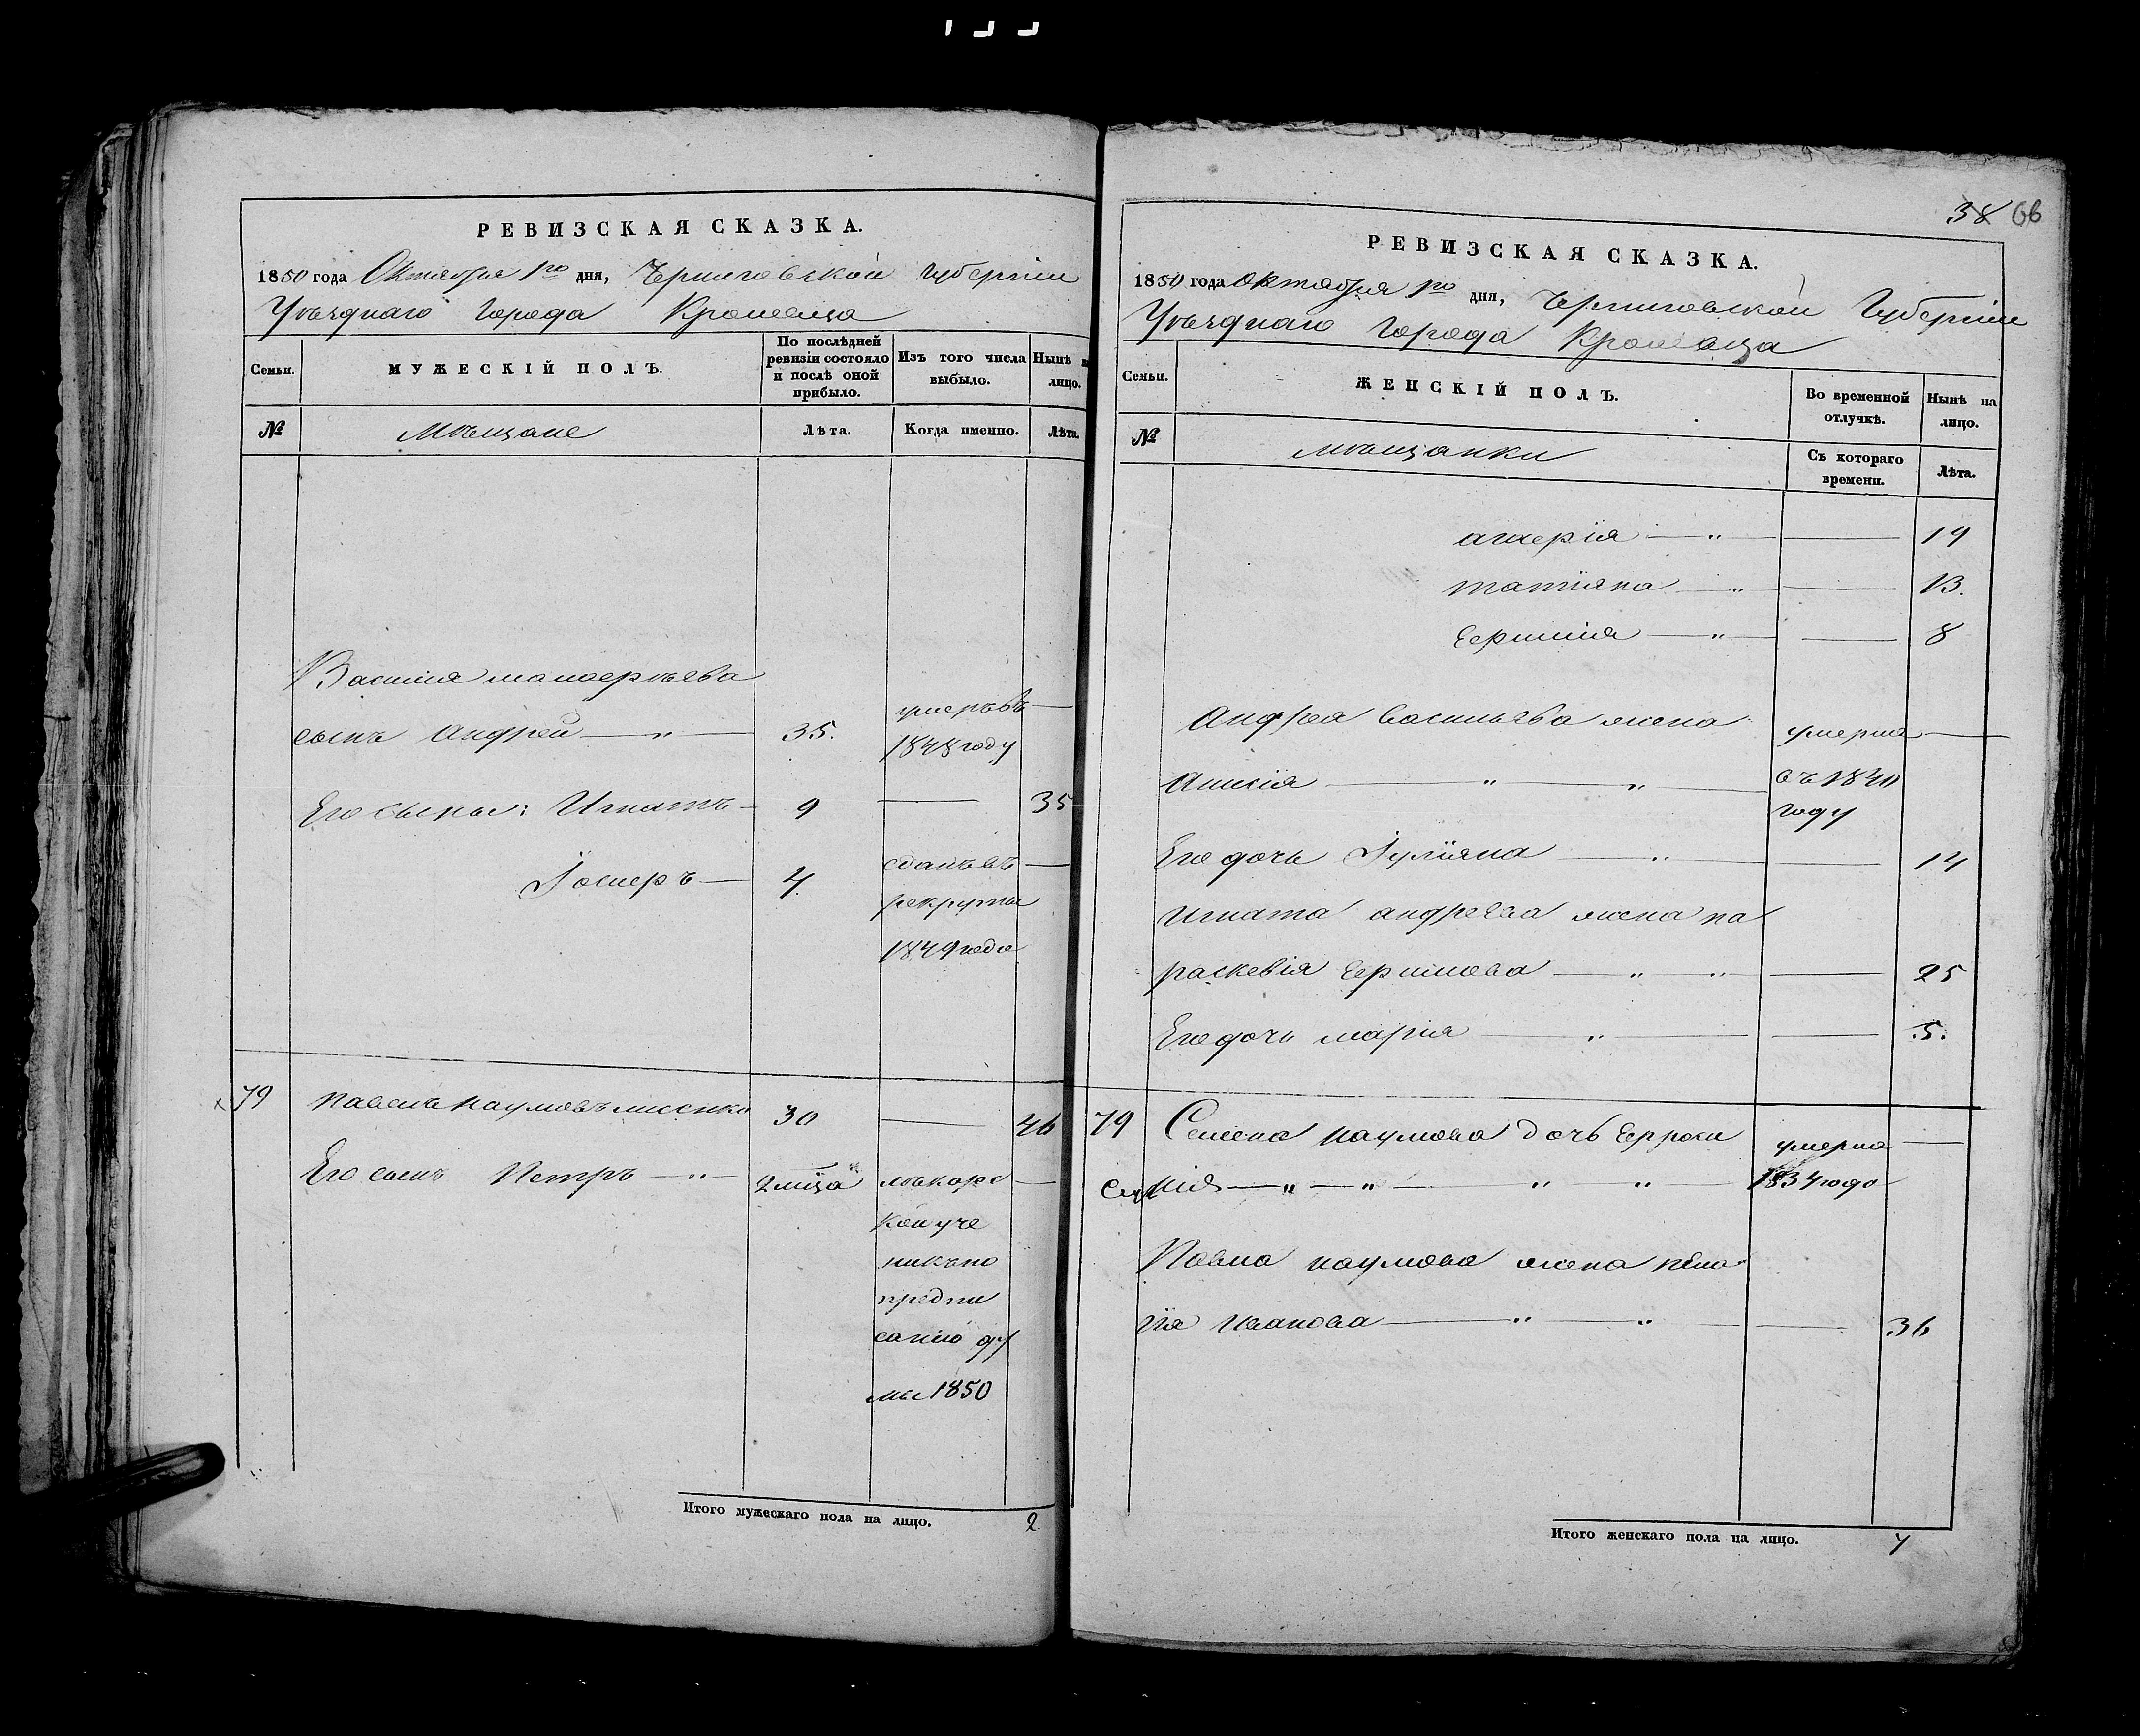 РЕВИЗСКАЯ СКАЗКА.
1850 года Октября 1го дня, Черниговской Губернии
Уѣзднаго Города Кролевца
Семьи.
МУЖЕСКІЙ ПОЛЪ.
По послѣдней ревизіи состояло и послѣ оной прибыло.
Изъ того числа выбыло.
Нынѣ на лицо.
№
Мѣщане
Лѣта.
Когда именно.
Лѣта.
Василия
сынъ Андрей — „ — 35. умеръ въ 1848 году —
Его сыны: Игнатъ — 9 — 35
Іосифъ — 4 сданъ въ рекруты 1849 года —
79 Павелъ Наумовъ 30 — 46
Его сынъ Петръ — „ — 2 мца лѣкарской ученикъ по предписанію думы 1850 —
Итого мужескаго пола на лицо. 2
38 66
РЕВИЗСКАЯ СКАЗКА.
1850 года Октября 1го дня, Черниговской Губернии
Уѣзднаго Города Кролевца
Семьи.
ЖЕНСКІЙ ПОЛЪ.
Во временной отлучкѣ.
Нынѣ на лицо.
№
мѣщанки
Съ котораго времени.
Лѣта.
— „ — — 19
татіяна — „ — 13.
— „ — — 8
Андрея Васильева жена умерла —
Анисія — „ — „ — въ 1840 году
Его дочь Іуліяна — „ — — 14
Игната андреева жена па
раскевія — „ „ — — 25
Его дочь марія — „ — — 5.
79 Семена наумова дочь Евроси умерла —
нія — „ — „ „ — „ — 1834 года
Павла наумова жена пела
гія Иванова — „ — „ — 36
Итого женскаго пола на лицо. 7